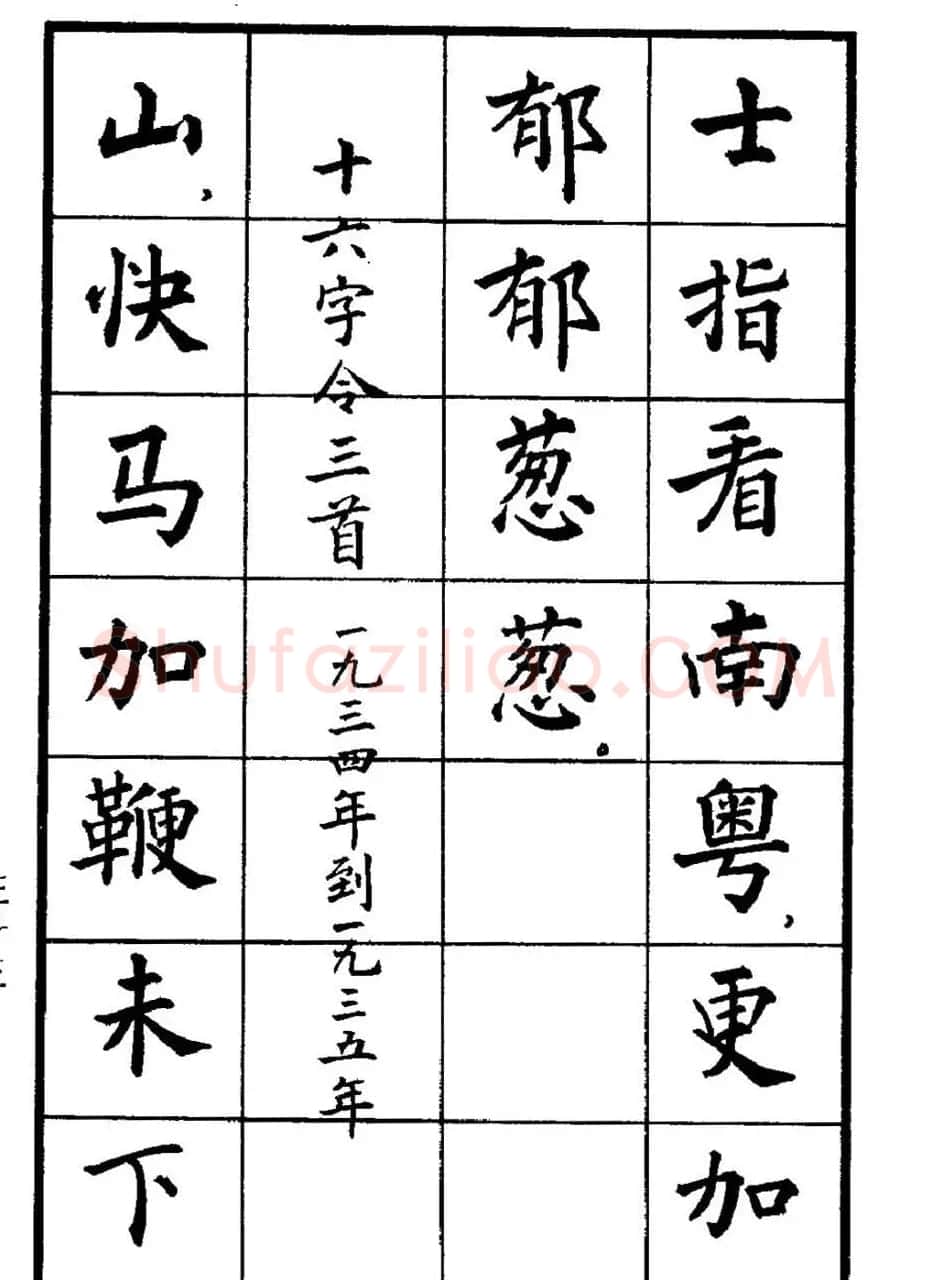 士指看南粤，更加
郁郁葱葱。
十六字令三首 一九三四年到一九三五年
山，快马加鞭未下
Shufaziliao.COM